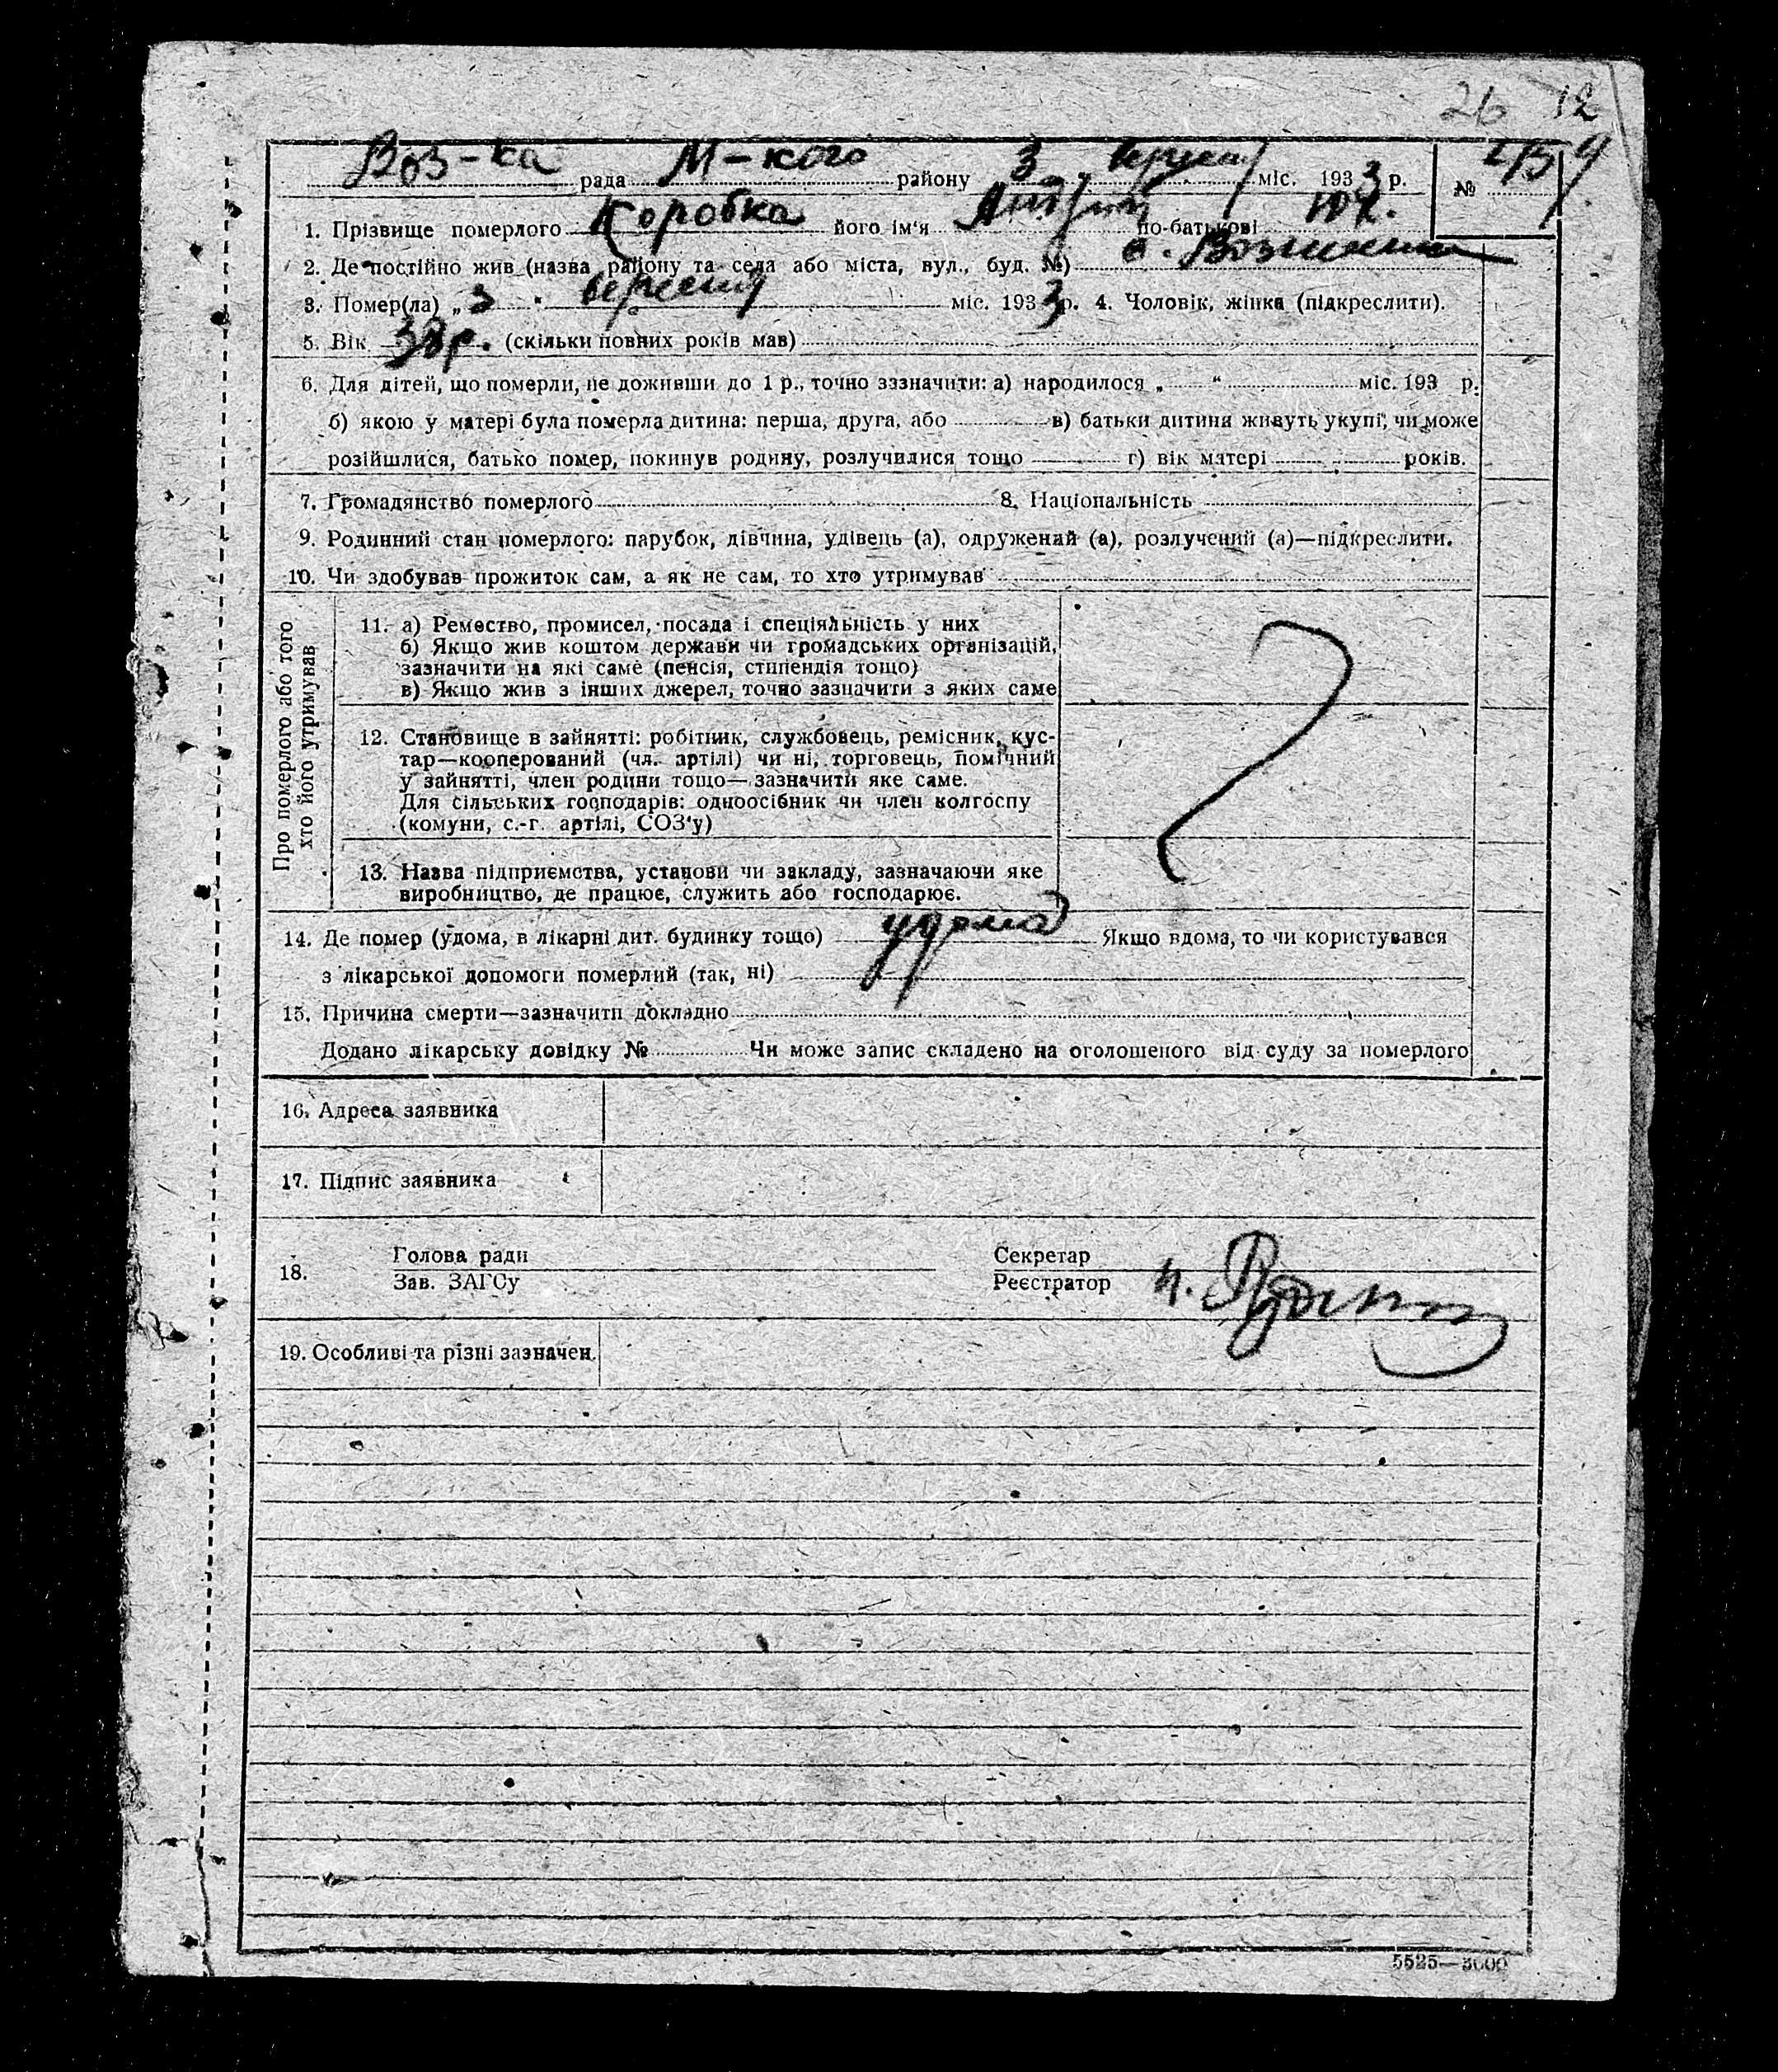 26 12
Воз-ка рада М-кого району 3 вересня міс. 1933 р. №
1. Прізвище померлого Коробка його ім'я Андрій по-батькові
2. Де постійно жив (назва району та села або міста, вул., буд. №) с.
3. Помер(ла) „3" вересня міс. 1933 р. 4. Чоловік, жінка (підкреслити).
5. Вік 38 р. (скільки повних років мав)
6. Для дітей, що померли, не доживши до 1 р., точно зазначити: а) народилося „ “ міс. 193 р.
б) якою у матері була померла дитина: перша, друга, або в) батьки дитини живуть укупі, чи може
розійшлися, батько помер, покинув родину, розлучилися тощо г) вік матері років.
7. Громадянство померлого 8. Національність
9. Родинний стан померлого: парубок, дівчина, удівець (а), одружений (а), розлучений (а)—підкреслити.
10. Чи здобував прожиток сам, а як не сам, то хто утримував
Про померлого або того
хто його утримував
11. а) Ремество, промисел, посада і спеціяльність у них
б) Якщо жив коштом держави чи громадських організацій,
зазначити на які саме (пенсія, стипендія тощо)
в) Якщо жив з інших джерел, точно зазначити з яких саме
12. Становище в зайнятті: робітник, службовець, ремісник, кус-
тар—кооперований (чл. артілі) чи ні, торговець, помічний
у зайнятті, член родини тощо—зазначити яке саме.
Для сільських господарів: одноосібник чи член колгоспу
(комуни, с.-г. артілі, СОЗ'у)
13. Назва підприємства, установи чи закладу, зазначаючи яке
виробництво, де працює, служить або господарює.
14. Де помер (удома, в лікарні дит. будинку тощо) удома Якщо вдома, то чи користувався
з лікарської допомоги померлий (так, ні)
15. Причина смерти—зазначити докладно
Додано лікарську довідку № Чи може запис складено на оголошеного від суду за померлого
16. Адреса заявника
17. Підпис заявника
18. Голова ради Секретар
Зав. ЗАГСу Реєстратор
19. Особливі та різні зазначен.
5525—3000